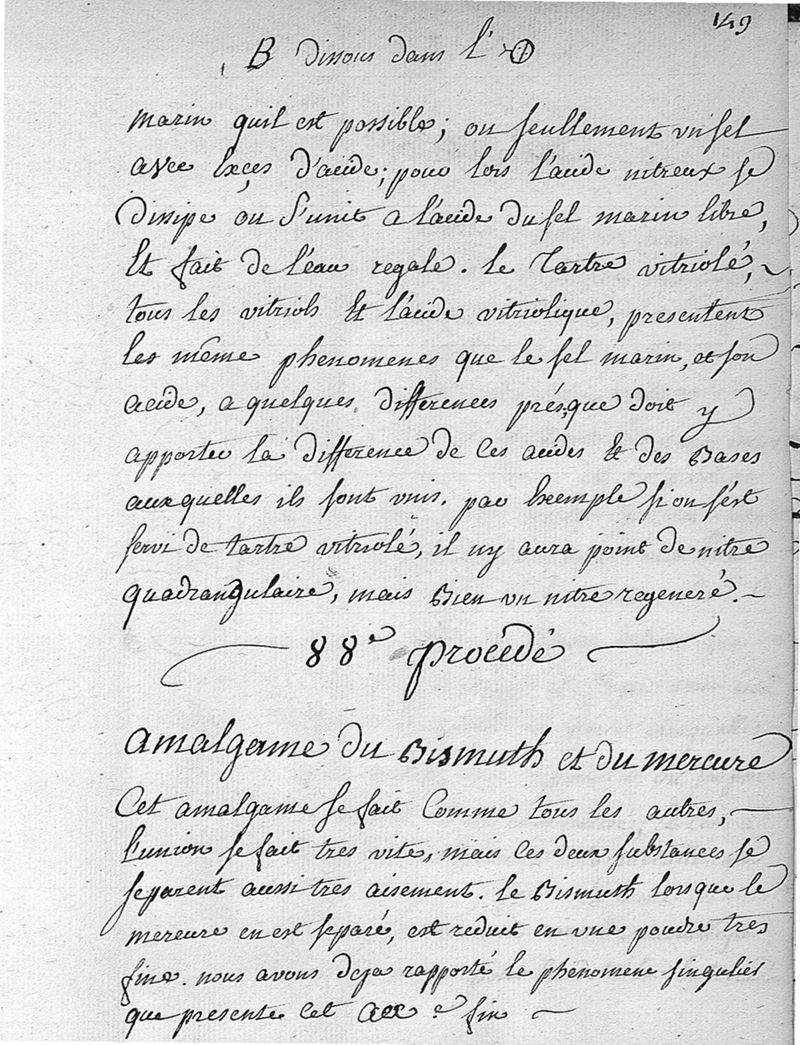 149
B dissous dans l'
marin quil est possible; ou seullement un sel
avec Exçes d'acide; pour lors l'acide nitreux se
Dissipe ou S'unit a l'acide du sel marin libre,
Et fait de l'eau regale. le Tartre vitriolé,
tous les vitriols Et l'acide vitriolique, presentent
les même phenomenes que le sel marin, et son
acide, a quelques differences prés, que doit y
apporter la difference de ces acides & des Bases
auxquelles ils sont unis. par Exemple si on s'est
servi de tartre vitriolé, il ny aura point de nitre
quadrangulaire, mais Bien un nitre regeneré.
88e procédé
amalgame du Bismuth et du mercure
Cet amalgame se fait Comme tous les autres,
l'union se fait tres vite, mais ces deux substances se
separent aussi tres aisement. le Bismuth lorsque le
mercure en est separé, est reduit en une poudre tres
fine. nous avons deja rapporté le phenomene singulier
que presente cet fin